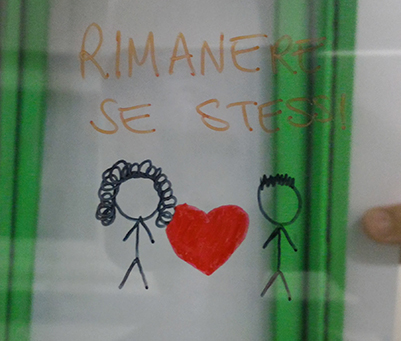 RIMANERE
SE STESSI